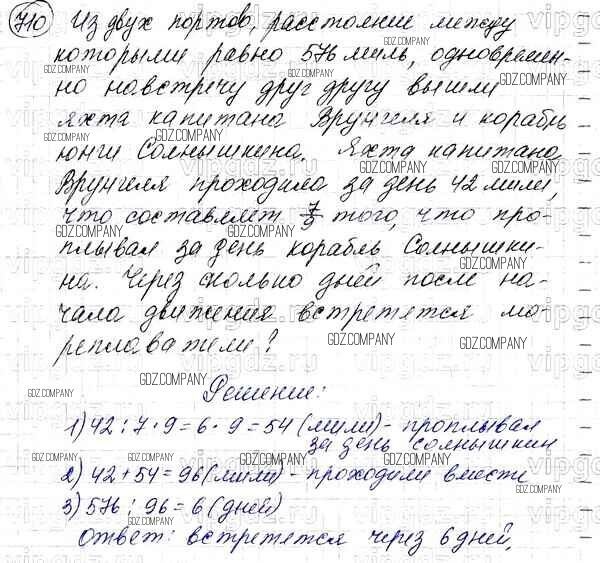 710 Из двух портов, расстояние между
которыми равно 576 миль, одновремен-
но навстречу друг другу вышли
яхта капитана Врунгеля и корабль
юнги Солнышкина. Яхта капитана
Врунгеля проходила за день 42 мили,
что составляет 7/9 того, что про-
плывал за день корабль Солнышки-
на. Через сколько дней после на-
чала движения встретятся мо-
реплаватели?
Решение:
1) 42 : 7 · 9 = 6 · 9 = 54 (мили) - проплывал
за день Солнышкин
2) 42 + 54 = 96 (мили) - проходили вместе
3) 576 : 96 = 6 (дней)
Ответ: встретятся через 6 дней.
GDZ.COMPANY
vipgdz.ru